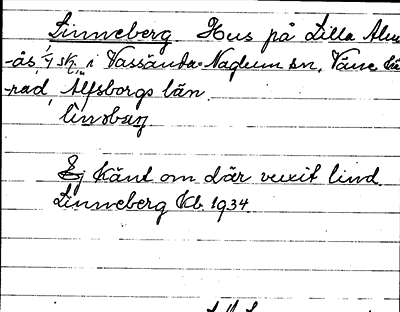 Linneberg Hus på Lilla Alm
-ås 1/4 sk. i Vassända-Naglum sn, Väne hä
-rad, Älfsborgs län.
linsbærj
Ej känt om där vuxit lind.
Linneberg Kb. 1934.